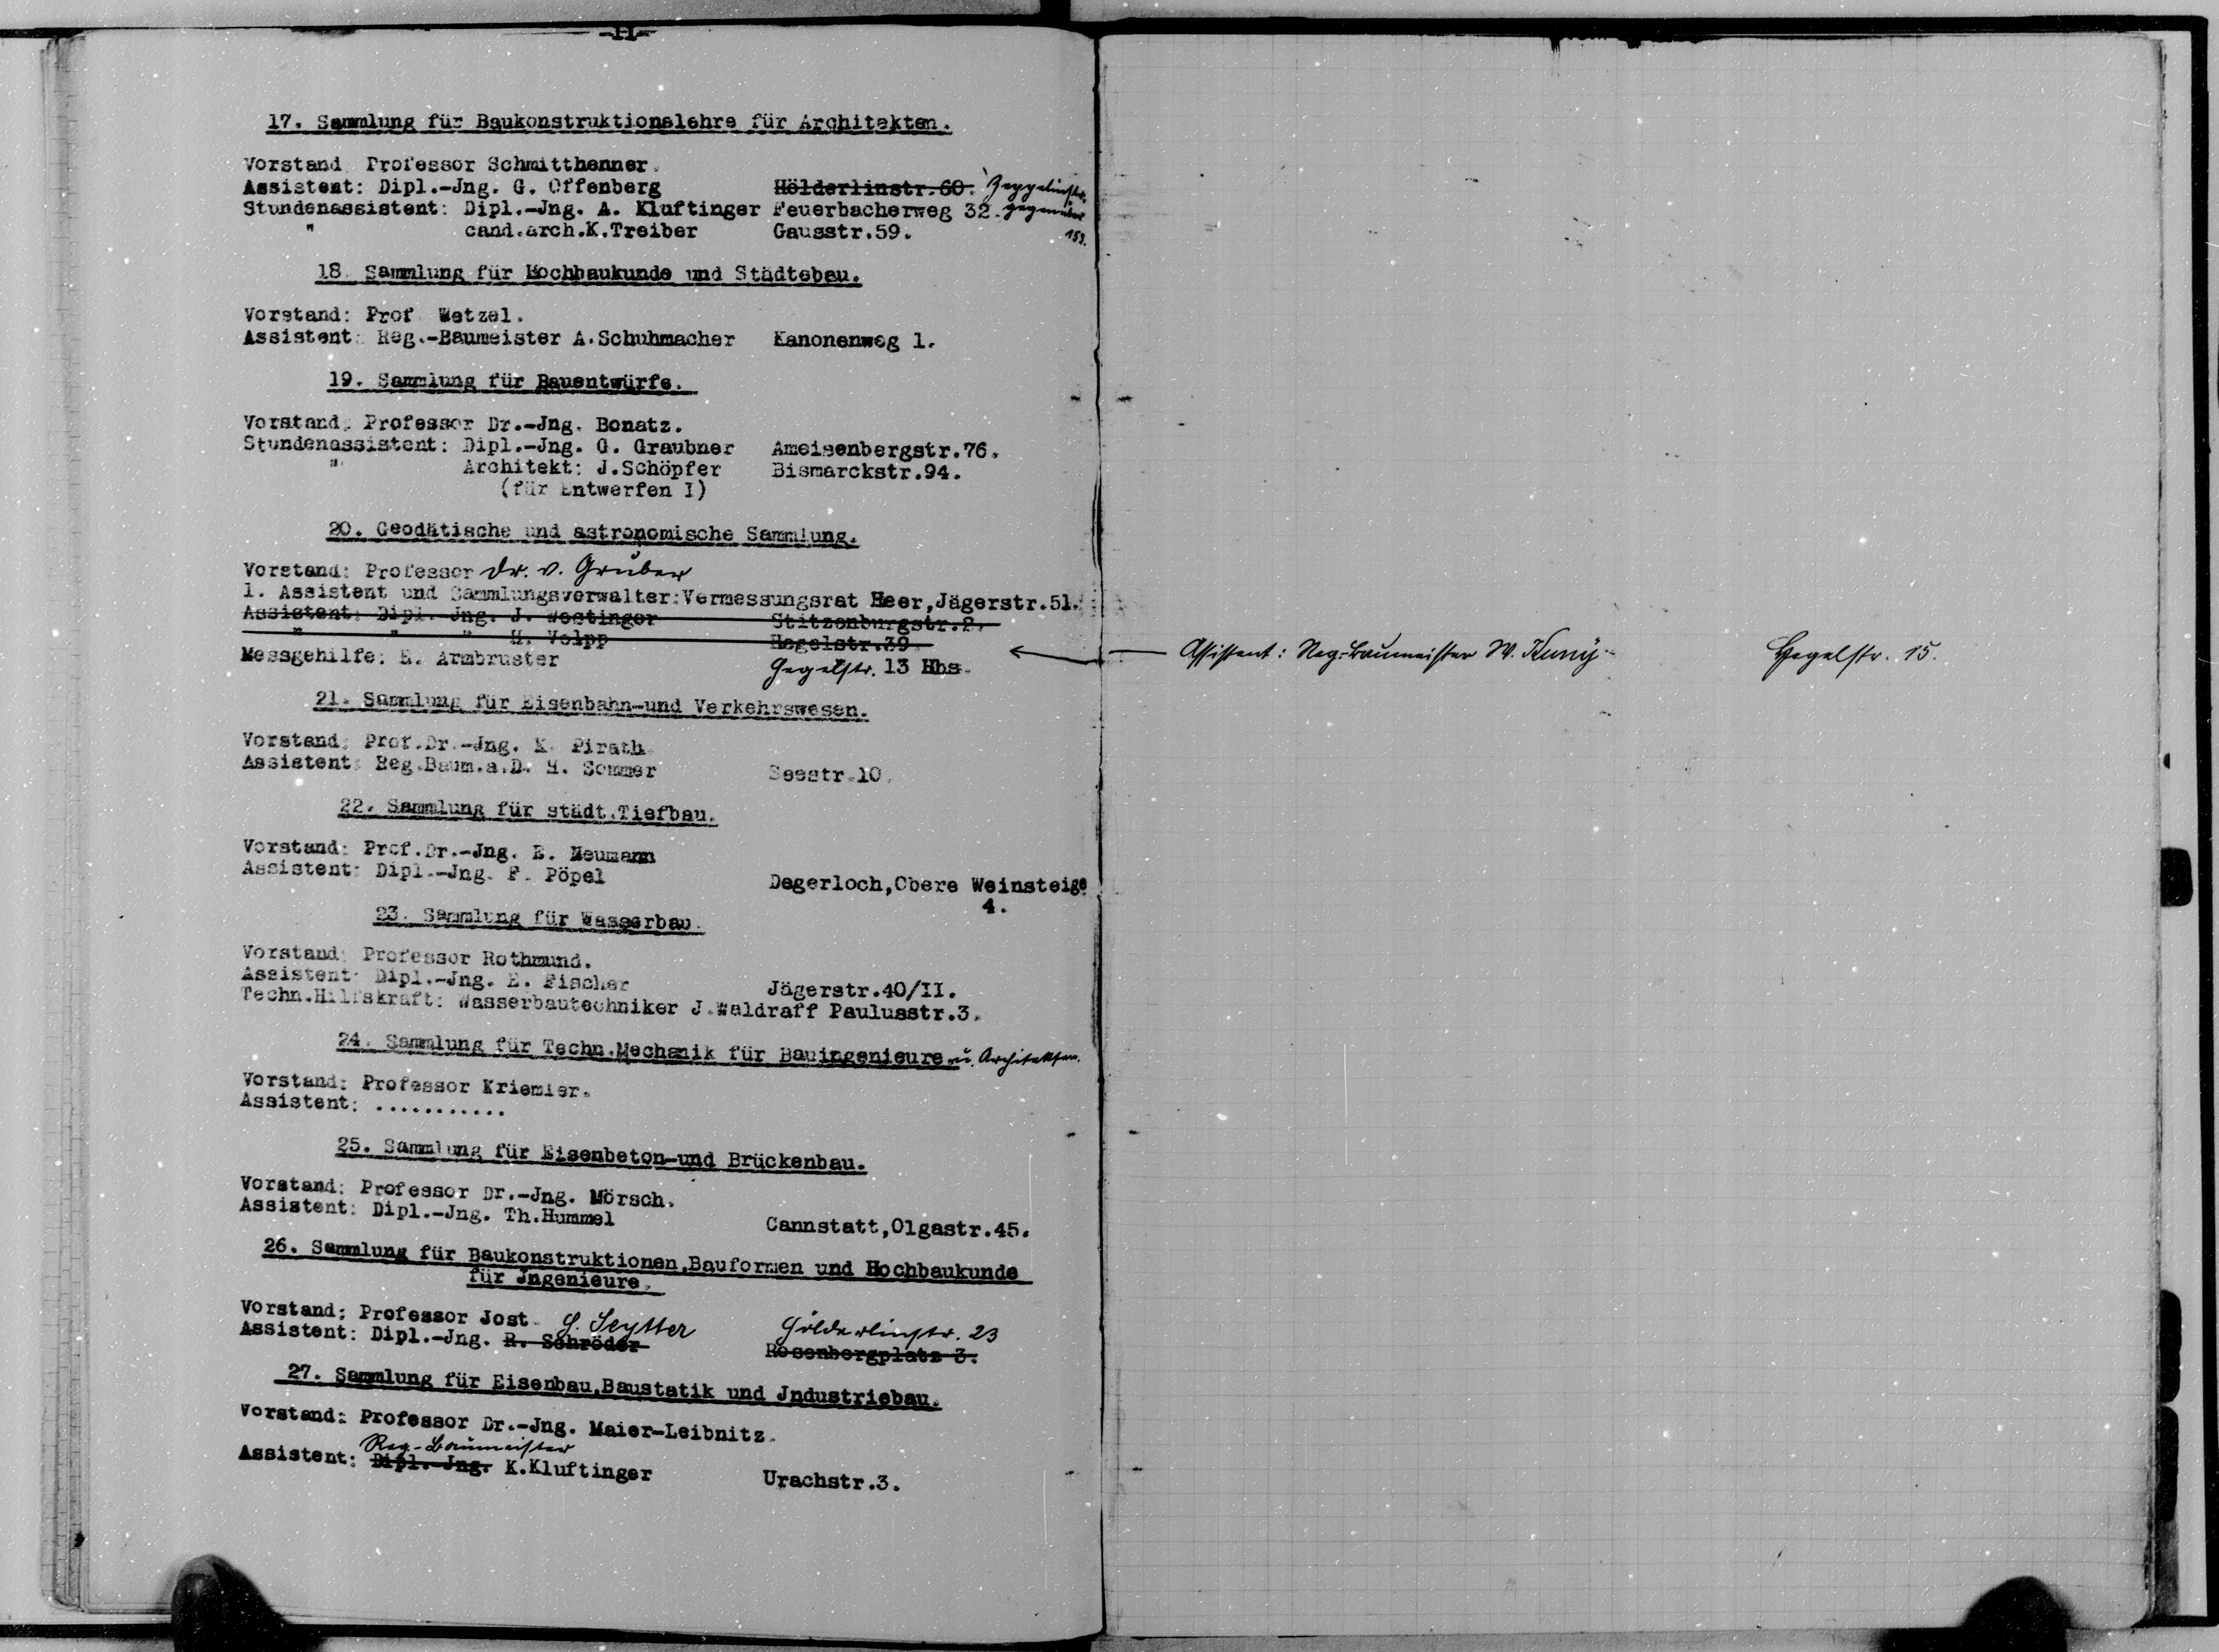 -11-
17. Sammlung für Baukonstruktionslehre für Architekten.
Vorstand Professor Schmitthenner.
Assistent: Dipl.-Jng. G. Offenberg Hölderlinstr.60. Zeppelinstr.
Stundenassistent: Dipl.-Jng. A. Kluftinger Feuerbacherweg 32. gegenüber
" cand.arch.K.Treiber Gausstr.59. 153.
18. Sammlung für Hochbaukunde und Städtebau.
Vorstand: Prof. Wetzel.
Assistent: Reg.-Baumeister A.Schuhmacher Kanonenweg 1.
19. Sammlung für Bauentwürfe.
Vorstand: Professor Dr.-Jng. Bonatz.
Stundenassistent: Dipl.-Jng. G. Graubner Ameisenbergstr.76.
" Architekt: J.Schöpfer Bismarckstr.94.
(für Entwerfen I)
20. Geodätische und astronomische Sammlung.
Vorstand: Professor Dr. v. Gruber
1. Assistent und Sammlungsverwalter:Vermessungsrat Heer,Jägerstr.51.
Assistent: Dipl. Jng. J. Westinger Stitzenburgstr.2.
" " " H. Volpp Hegelstr.39.
Messgehilfe: E. Armbruster Hegelstr. 13 Hbs.
Assistent: Reg.-Baumeister W. Kuny Hegelstr. 15.
21. Sammlung für Eisenbahn-und Verkehrswesen.
Vorstand: Prof.Dr.-Jng. K. Pirath
Assistent: Reg.Baum.a.D. H. Sommer Seestr.10.
22. Sammlung für städt.Tiefbau.
Vorstand: Prof.Dr.-Jng. E. Neumann
Assistent: Dipl.-Jng. F. Pöpel Degerloch,Obere Weinsteige
4.
23. Sammlung für Wasserbau.
Vorstand: Professor Rothmund.
Assistent: Dipl.-Jng. E. Fischer Jägerstr.40/II.
Techn.Hilfskraft: Wasserbautechniker J.Waldraff Paulusstr.3.
24. Sammlung für Techn.Mechanik für Bauingenieure u. Architekten.
Vorstand: Professor Kriemler.
Assistent: ...........
25. Sammlung für Eisenbeton-und Brückenbau.
Vorstand: Professor Dr.-Jng. Mörsch.
Assistent: Dipl.-Jng. Th.Hummel Cannstatt,Olgastr.45.
26. Sammlung für Baukonstruktionen,Bauformen und Hochbaukunde
für Jngenieure.
Vorstand: Professor Jost.
G. Seytter Hölderlinstr. 23
Assistent: Dipl.-Jng. R. Schröder Rosenbergplatz 3.
27. Sammlung für Eisenbau,Baustatik und Jndustriebau.
Vorstand: Professor Dr.-Jng. Maier-Leibnitz.
Reg.-Baumeister
Assistent: Dipl.-Jng. K.Kluftinger Urachstr.3.